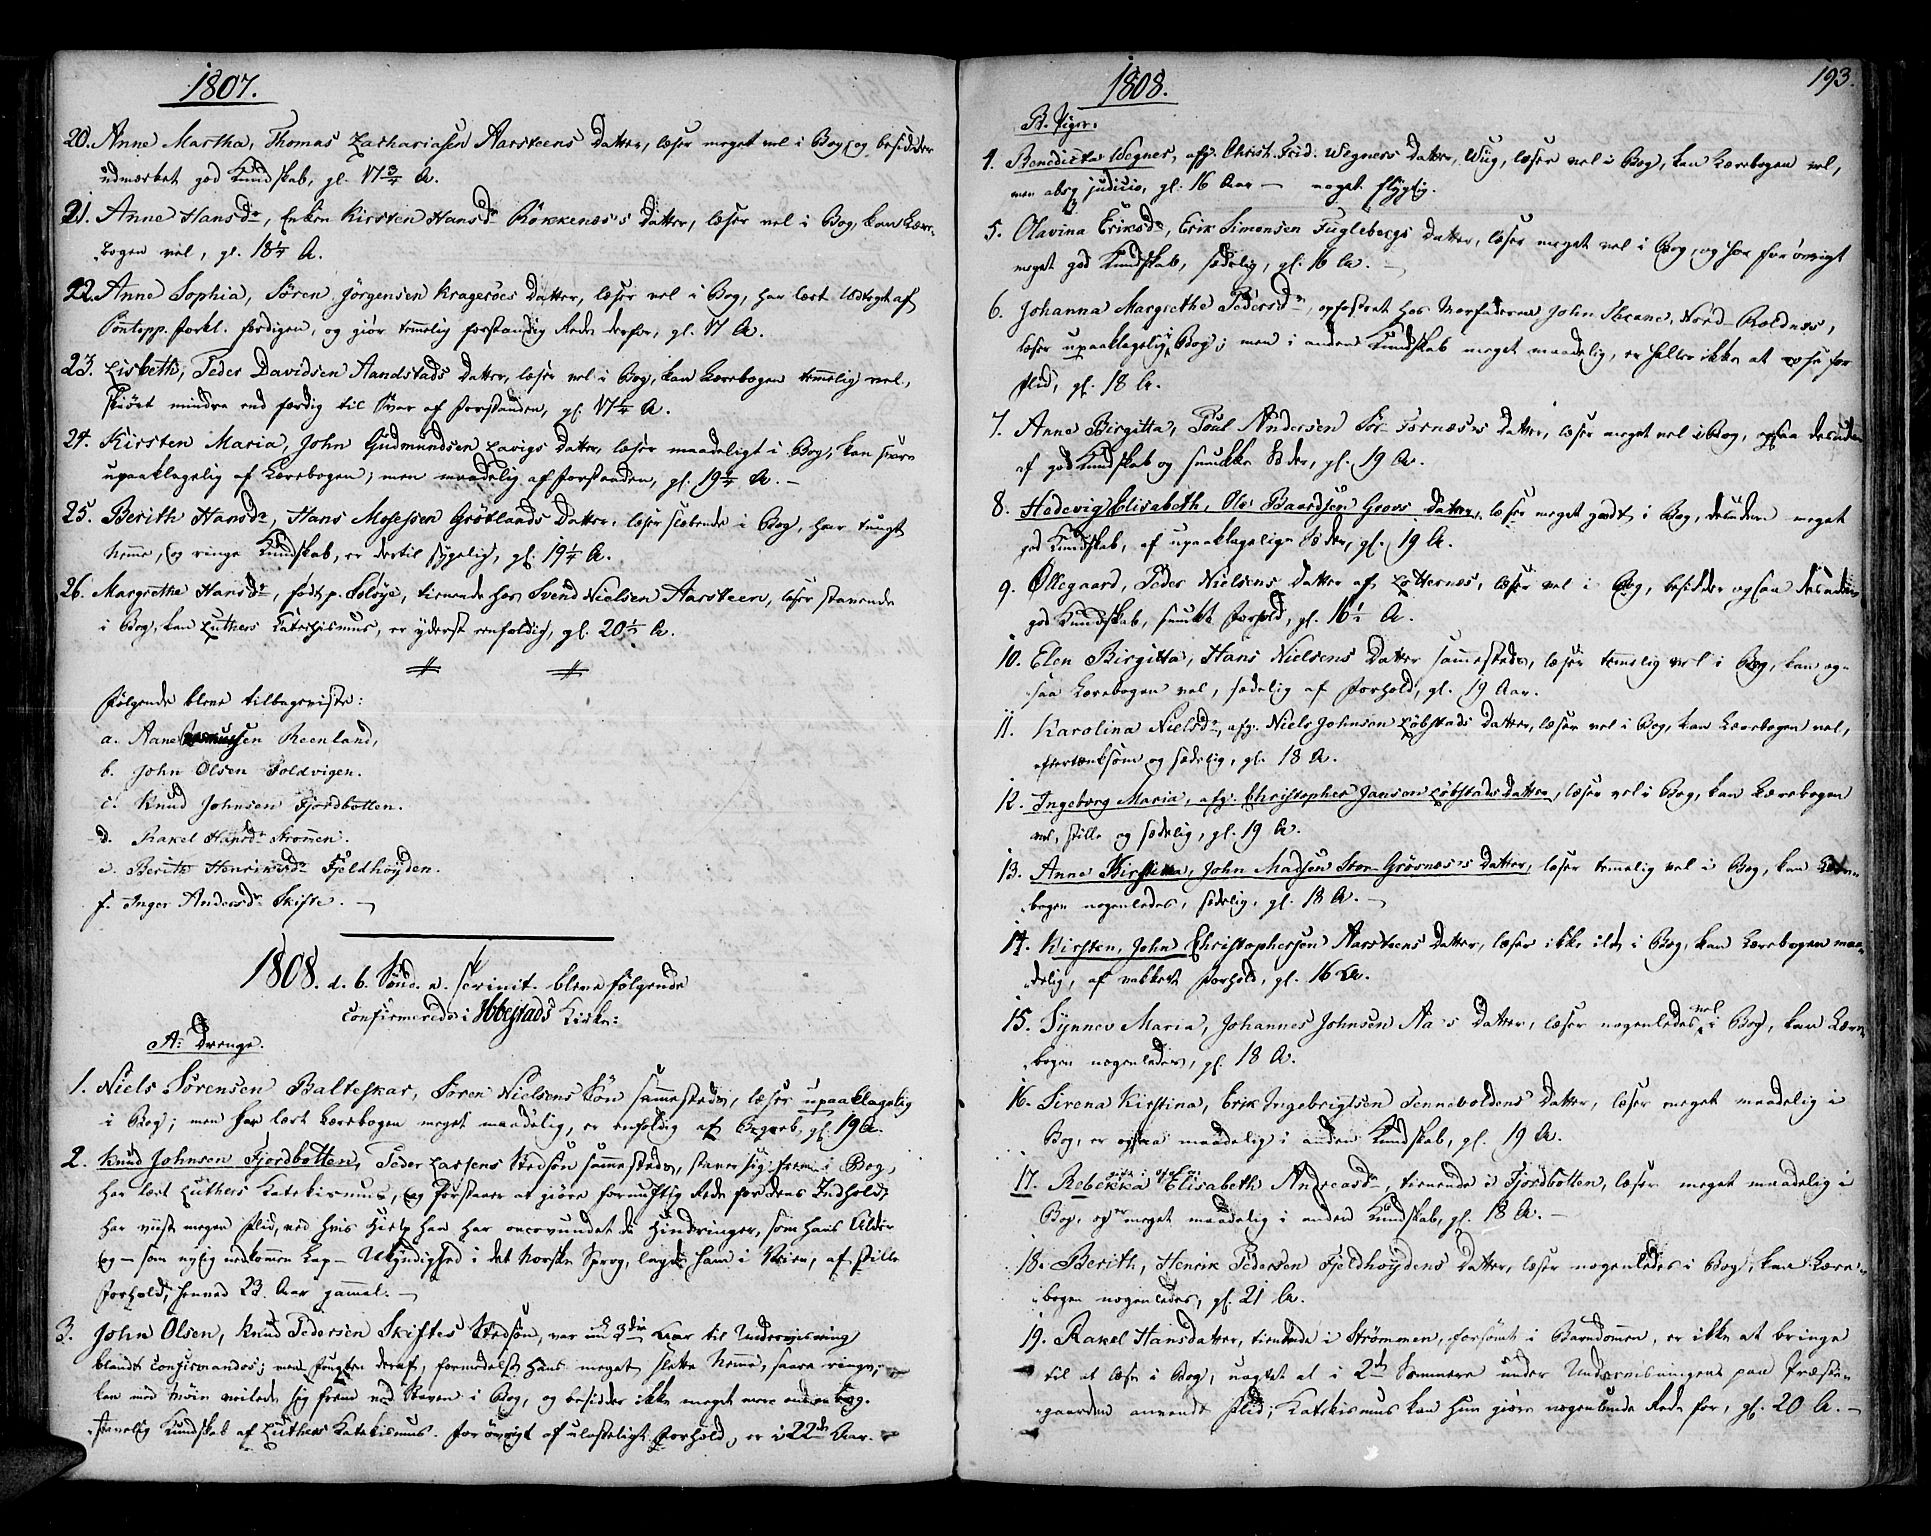 1807.
20. Anne Martha, Thomas Zachariasen Aarsteens Datter, læser meget vel i Bog, og besidder
udmærket god Kundskab, gl. 17 3/4 A.
21. Anne Hansdr, Enken Kirsten Hansdr Rökkenæs's Datter, læser vel i Bog, kan Lære-
bogen vel, gl. 18 1/2 A.
22. Anne Sophia, Sören Jörgensen Krageröes Datter, læser vel i Bog, har lært Udtoget af
Pontopp. Forkl. færdigen, og giör temmelig forstandig Rede derfor, gl. 17 A.
23. Lisbeth, Peder Davidsen Aandstads Datter, læser vel i Bog, kan Lærebogen temmelig vel,
skiönt mindre end færdig til Svar af Forstanden, gl. 17 1/4 A.
24. Kirsten Maria, John Gudmundsen Lavigs Datter, læser maadeligt i Bog, kan svare
upaaklagelig af Lærebogen; men maadelig af Forstanden, gl. 19 1/2 A. -
25. Berith Hansdr, Hans Mosessen Grötlands Datter, læser slæbende i Bog, har tungt
Nemme, og ringe Kundskab, er dertil sygelig, gl. 19 1/4 A.
26. Margrethe Hansdr, født p. Solöye, tienende hos Svend Nielsen Aarsteen, læser stavende
i Bog, kan Luthers Katechismus, er yderst eenfoldig, gl. 20 1/2 A.
Følgende bleve tilbageviste:
a. Aane Rasmussen Reenland,
b. John Olsen Foldvigen.
c. Knud Johnsen Fjordbotten.
d. Rakel Hansdr Strömen.
e. Berith Henriksdr Fjeldhöyden.
f. Inger Andersdr Skifte. -
1808. d. 6. Sönd. a. Trinit. bleve følgende
confirmerede i Ibbestads Kirke:
A. Drenge.
1. Niels Sörensen Balteskar, Sören Nielsens Sön sammesteds, læser upaaklagelig
i Bog; men har lært Lærebogen meget maadelig, er eenfoldig af Begreb, gl. 19 A.
2. Knud Johnsen Fjordbotten, Peder Larsens Stedsön sammesteds, staver sig frem i Bog,
har lært Luthers Katekismus, og forstaaer at giöre fornuftig Rede for dens Indhold,
har viist megen Flid, ved hvis Hielp han har overvundet de Hindringer, som hans Alder
og - som nylig nedkommen Lap - Ukyndighed i det Norske Sprog, lagde ham i Veien, af stille
Forhold, henved 23. Aar gammel. -
3. John Olsen, Knud Pedersen Skiftes Stedsön, var nu 3die Aar til Underviisning
blandt Confirmandes; men Frugten deraf, formedelst hans meget slette Nemme, saare ringe;
kan med Möie veilede sig frem ved Staven i Bog, og besidder ikke meget mere end en bog-
stavelig Kundskab af Luthers Katekismus. For övrigt af ulasteligt Forhold, er i 22de Aar. -
1808.
193.
B. Piger.
4. Benedicta Wegner, afg. Christ. Frid. Wegners Datter, Wüg, læser vel i Bog, kan Lærebogen vel,
men absq judicio, gl. 16 Aar - noget flygtig.
5. Olavina Eriksdr, Erik Simonsen Fuglebergs Datter, læser meget vel i Bog, og har for övrigt
meget god Kundskab, sædelig, gl. 16 A. -
6. Johanna Margrethe Pedersdr, opfostret hos Morfaderen John Skeane, Nord-Roldnæs,
læser upaaklagelig i Bog; men i anden Kundskab meget maadelig, er heller ikke at rose for
Flid, gl. 18 A.
7. Anne Birgitta, Poul Andersen Sör-Fornæs's Datter, læser meget vel i Bog, ogsaa desuden
af god Kundskab og smukke Sæder, gl. 19 A.
8. Hedevig Elisabeth, Ole Baardsen Grovs Datter, læser meget godt i Bog, desuden meget
god Kundskab, af upaaklagelige Sæder, gl. 19 A.
9. Øllegaard, Peder Nielsens Datter af Lötternæs, læser vel i Bog, besidder ogsaa desuden
god Kundskab, smukt Forhold, gl. 16 1/2 A.
10. Elen Birgitta, Hans Nielsens Datter sammesteds, læser temmelig vel i Bog, kan og-
saa Lærebogen vel, sædelig af Forhold, gl. 19 Aar.
11. Karolina Nielsdr, afg. Niels Johnsen Löbstads Datter, læser vel i Bog, kan Lærebogen vel,
eftertænksom og sædelig, gl. 18 A.
12. Ingeborg Maria, afg. Christopher Jansen Löbstads Datter, læser vel i Bog, kan Lærebogen
vel, stille og sædelig, gl. 19 A.
13. Anne Kirstina, John Madsen Stor-Grösnæs's Datter, læser temmelig vel i Bog, kan Lære-
bogen nogenledes, sædelig, gl. 18 A. -
14. Kirsten, John Christophersen Aarsteens Datter, læser ikke ilde i Bog, kan Lærebogen maa-
delig, af vakkert Forhold, gl. 16 A.
15. Synnev Maria, Johannes Johnsen Aa's Datter, læser nogenledes vel i Bog, kan Lære-
bogen nogenledes, gl. 18 A.
16. Sirena Kirstina, Erik Ingebrigtsen Tennevoldens Datter, læser meget maadelig i
Bog, er ogsaa maadelig i anden Kundskab, gl. 19 A.
17. Rebekka Elisabeth Andreasdr, tienende i Fjordbotten, læser meget maadelig i
Bog, og er meget maadelig i anden Kundskab, gl. 18 A. -
18. Berith, Henrik Pedersen Fjeldhöydens Datter, læser nogenledes i Bog, kan Lære-
bogen nogenledes, gl. 21 A.
19. Rakel Hansdatter, tienende i Strömmen, forsömt i Barndommen, er ikke at bringe
til at læse i Bog, uagtet at i 2de Sommere under Underviisningen paa Præste-
gaarden anvendt Flid; Katekismus kan hun giöre nogenlunde Rede for, gl. 20 A. -